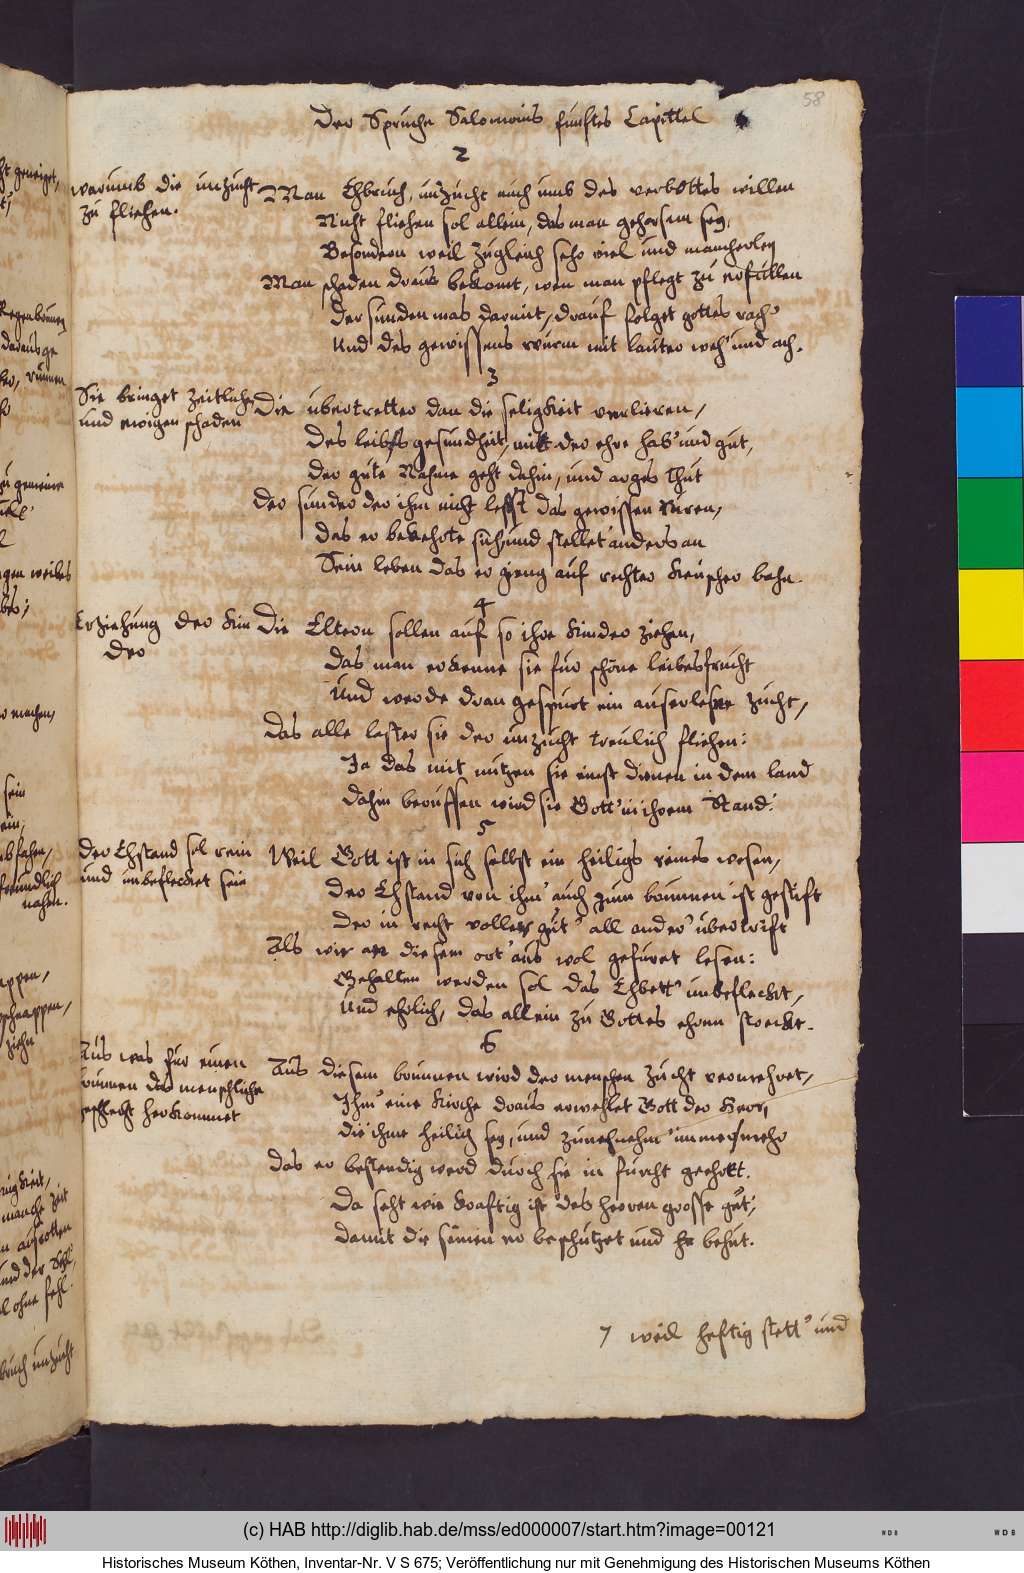 58
Der Sprüche Salomonis fünftes Capittel
2
warumb die unzucht
zu fliehen.
Man Ehbruch, unzucht auch umb des verbottes willen
Nicht fliehen sol allein, das man gehorsam sey,
Besondern weil zugleich sehr viel und mancherley
Man schaden draus bekomt, wen man pflegt zu erfüllen
Der sunden mas darmit, drauf folget gottes rach'
Und des gewissens wurm mit lauter weh' und ach.
3
Sie bringet zeitlichen
und ewigen schaden
Die ubertretter dan die seligkeit verlieren,
Des leibs gesundheit, mitt der ehre hab' und gut,
Der gute Nahme geht dahin, und arges thut
Der sunder der ihm nicht lesst das gewissen rüren,
Das er bekehrte sich, und stellet' anders an
Sein leben das er gieng auf rechter keuscher bahn.
4
Erziehung der Kin
der
Die Eltern sollen auf so ihre Kinder ziehen,
Das man erkenne sie fur schöne leibesfrucht
Und werde dran gespurt ein auserlesne zucht,
Das alle laster sie der unzucht treulich fliehen:
Ja das mit nutzen sie einst dienen in dem land
Dahin beruffen wird sie Gott' in ihrem Stand.
5
Der Ehstand sol rein
und unbeflecket sein
Weil Gott ist in sich selbst ein heiligs reines wesen,
Der Ehstand von ihm' auch zum brunnen ist gestift
Der in recht voller gut' all ander' ubertrift
Als wir an diesem ort' aus wol gefüret lesen:
Gehalten werden sol das Ehbett' unbeflecht,
Und ehrlich, das allein zu Gottes ehren streckt.
6
Aus was fur einen
brunnen das menschliche
geschlecht herkommet
Aus diesem brunnen wird der menschen zucht vermehret,
Ihm' eine Kirche draus erwehlet Gott der Herr,
die ihme heilig sey, und zunehm' immer mehr
Das er bestendig werd durch sie in furcht geehrt.
Da seht wie kraftig ist des herren grosse gut,
Damit die seinen er beschutzet und behut.
7 weil heftig stett' und
(c) HAB http://diglib.hab.de/mss/ed000007/start.htm?image=00121
Historisches Museum Köthen, Inventar-Nr. V S 675; Veröffentlichung nur mit Genehmigung des Historischen Museums Köthen